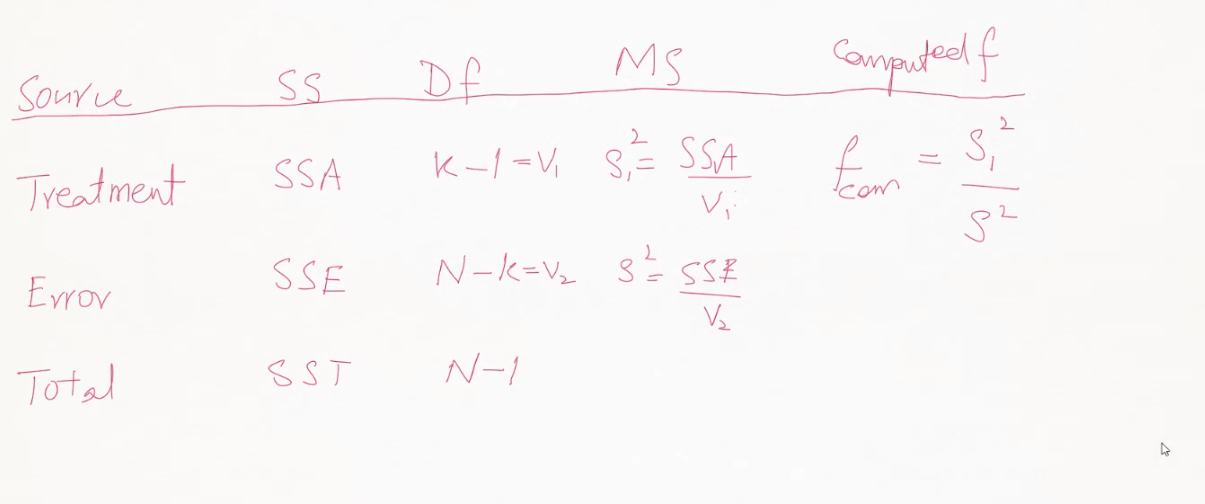 Source SS Df MS Computed f
Treatment SSA k-1=V₁ S₁²= SSA/V₁ f com = S₁²/S²
Error SSE N-k=V₂ S²= SSE/V₂
Total SST N-1